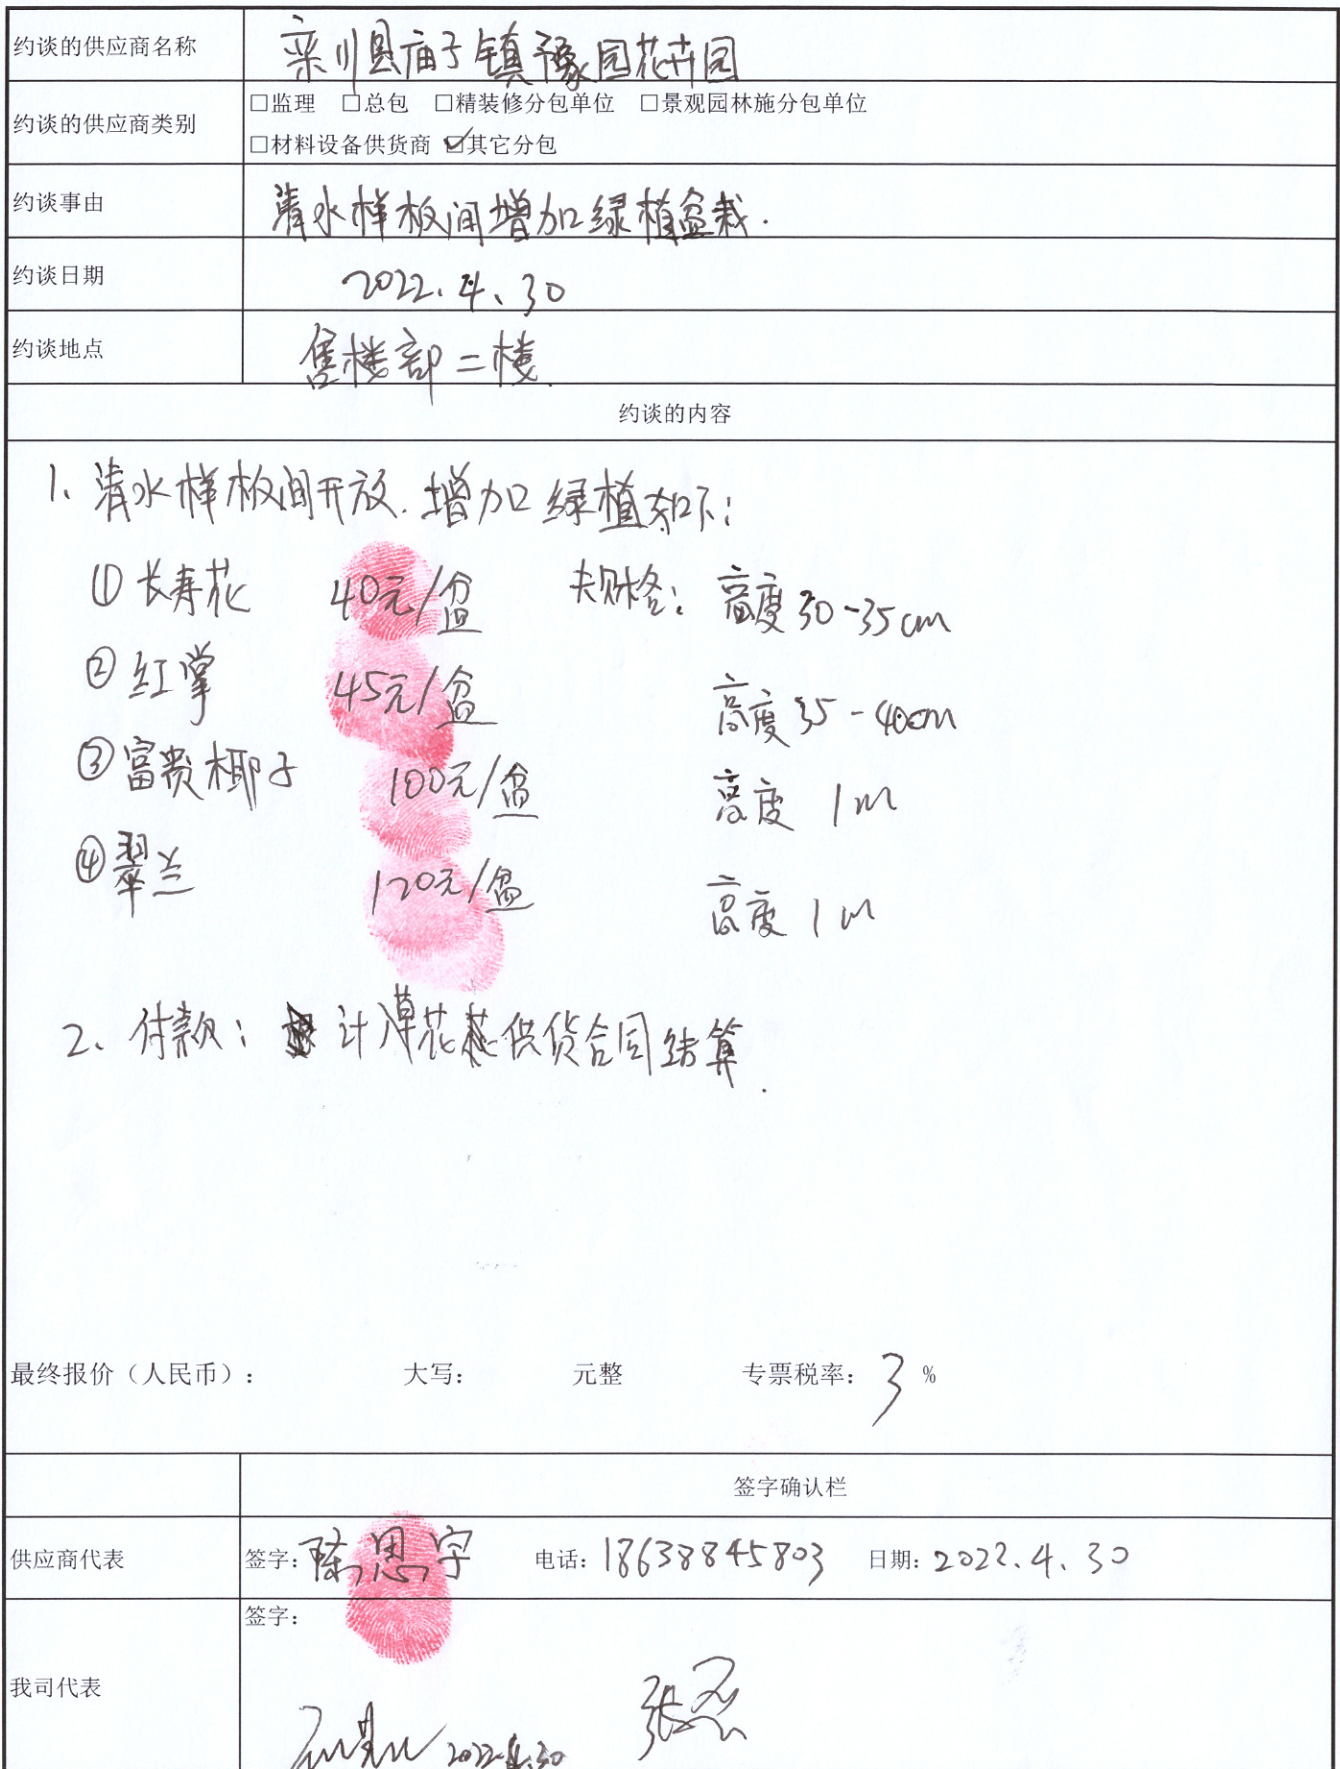 约谈的供应商名称 栾川县庙子镇豫园花卉园
约谈的供应商类别 □监理 □总包 □精装修分包单位 □景观园林施分包单位
□材料设备供货商 ☑其它分包
约谈事由 清水样板间增加绿植盆栽.
约谈日期 2022.4.30
约谈地点 售楼部二楼.
约谈的内容
1、清水样板间开放.增加绿植如下:
①长寿花 40元/盆 规格: 高度30-35cm
②红掌 45元/盆 高度35-40cm
③富贵椰子 100元/盆 高度 1m
④翠兰 120元/盆 高度 1m
2、付款: 计 草花 供货合同结算.
最终报价（人民币）: 大写: 元整 专票税率: 3 %
签字确认栏
供应商代表 签字: 陈思宇 电话: 18638845803 日期: 2022.4.30
签字:
我司代表
2022.4.30